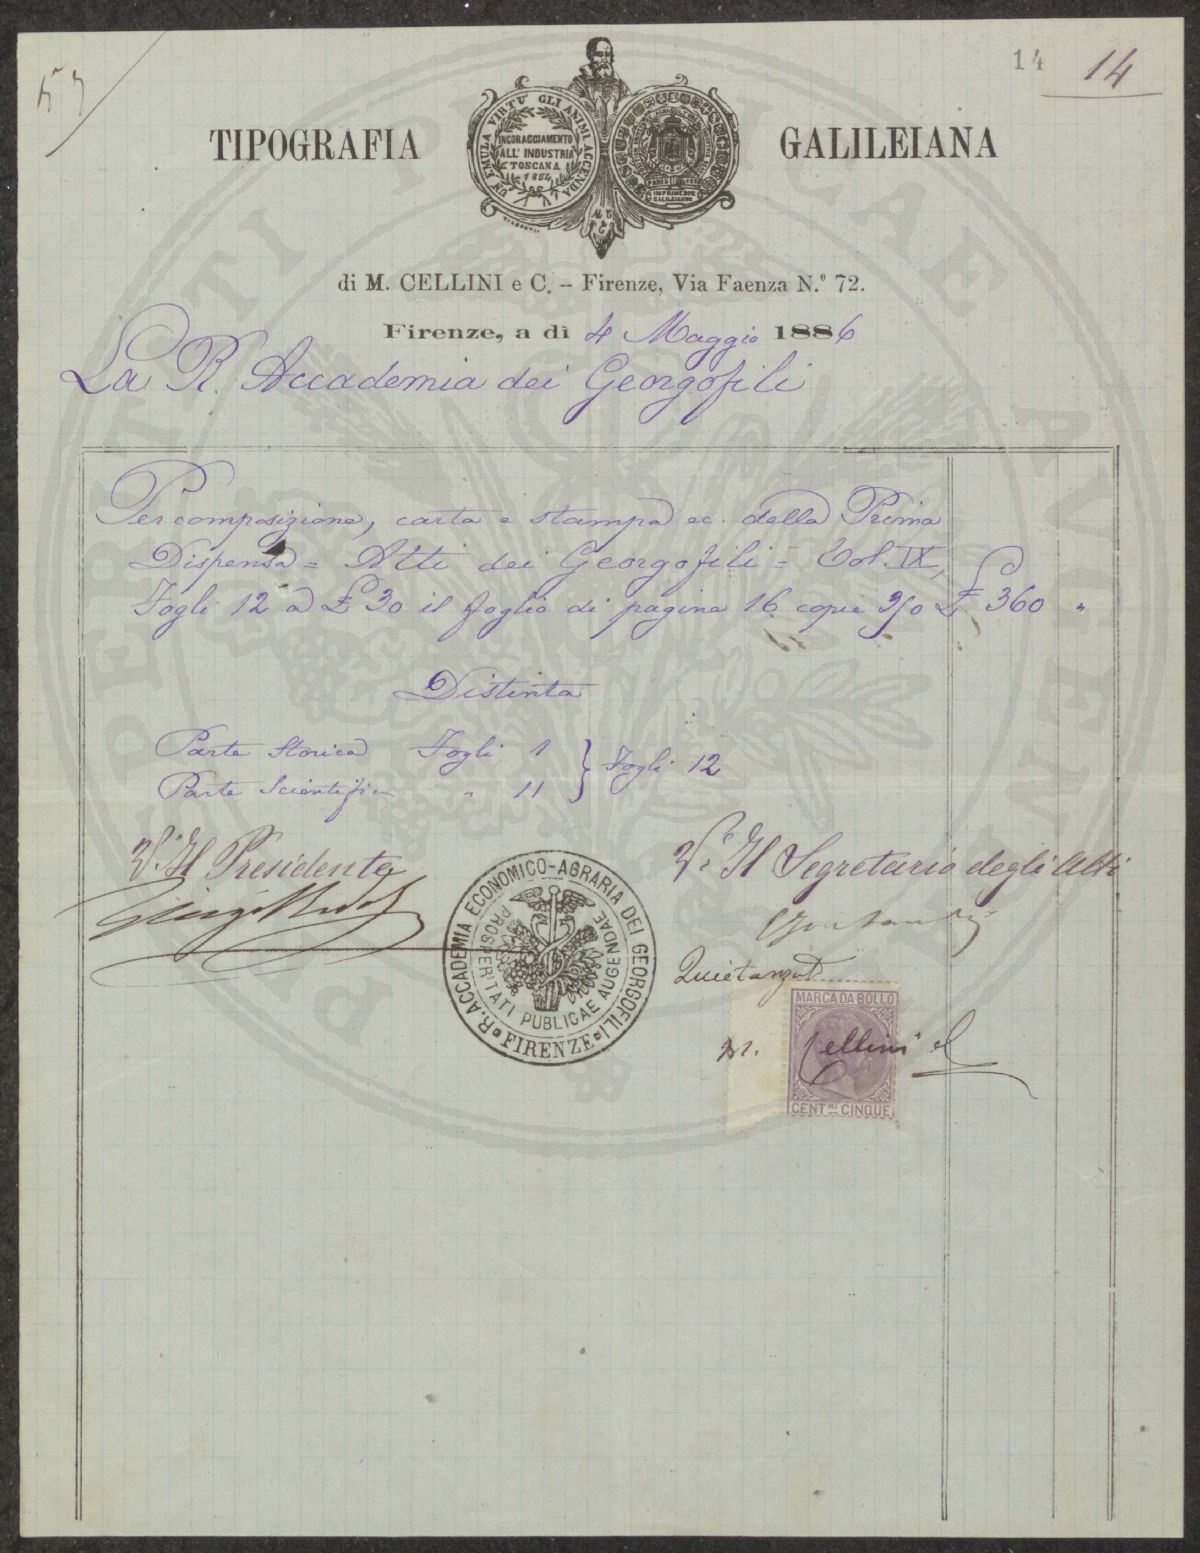 57
14 14
TIPOGRAFIA GALILEIANA
UN EMULA VIRTU' GLI ANIMI ACCENDA
INCORAGGIAMENTO
ALL' INDUSTRIA
TOSCANA
1854
di M. CELLINI e C. -- Firenze, Via Faenza N.° 72.
Firenze, a dì 4 Maggio 1886
La R. Accademia dei Georgofili
Per composizione, carta e stampa ec. della Prima
Dispensa = Atti dei Georgofili = Vol. IX,
Fogli 12 a £ 30 il foglio di pagine 16 copie £ 360 "
Distinta
Parte Storica Fogli 1 } Fogli 12
Parte Scientifica " 11
V.° Il Presidente
V.° Il Segretario degli Atti
R. ACCADEMIA ECONOMICO-AGRARIA DEI GEORGOFILI
FIRENZE
PROSPERITATI PUBLICAE AUGENDAE
Quietanzat
MARCA DA BOLLO
M. Cellini e C
CENT.MI CINQUE
PROSPERITATI PUBLICAE AUGENDAE